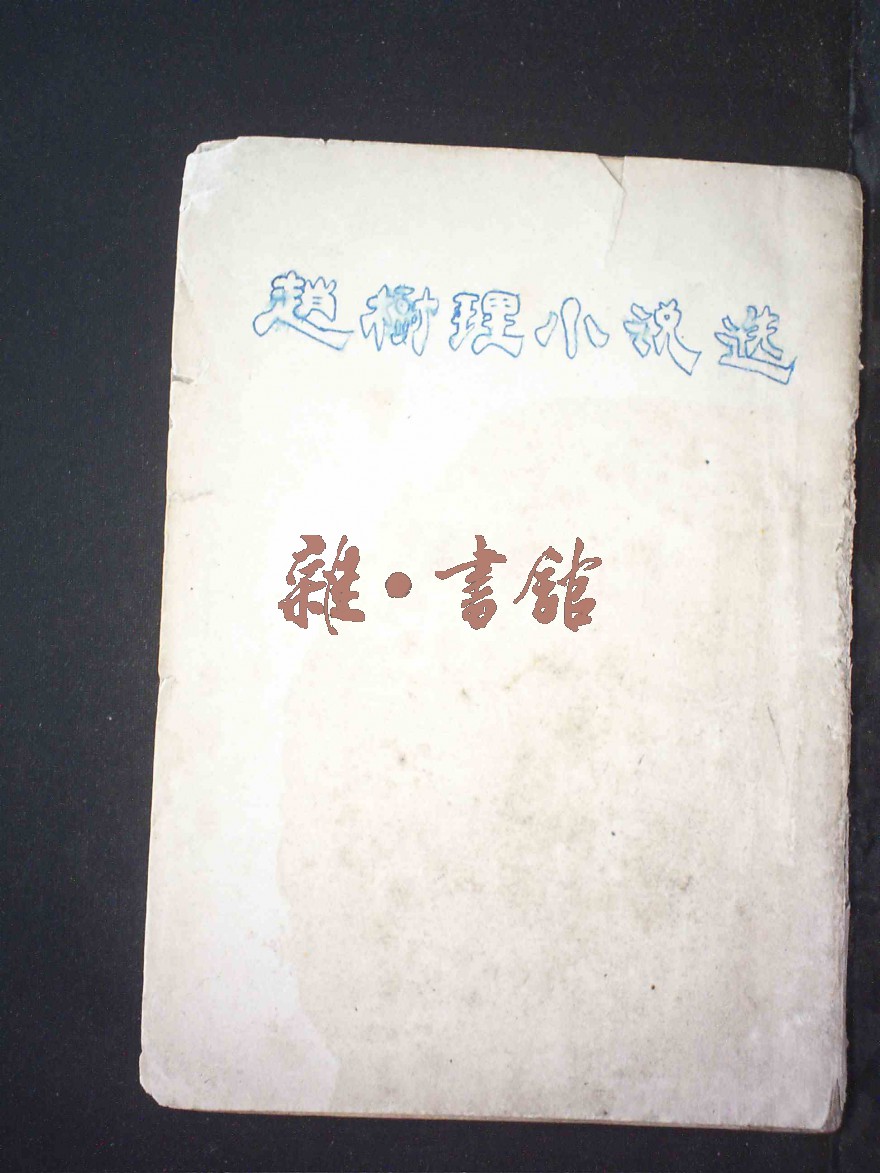 趙樹理小说选
雜·書館